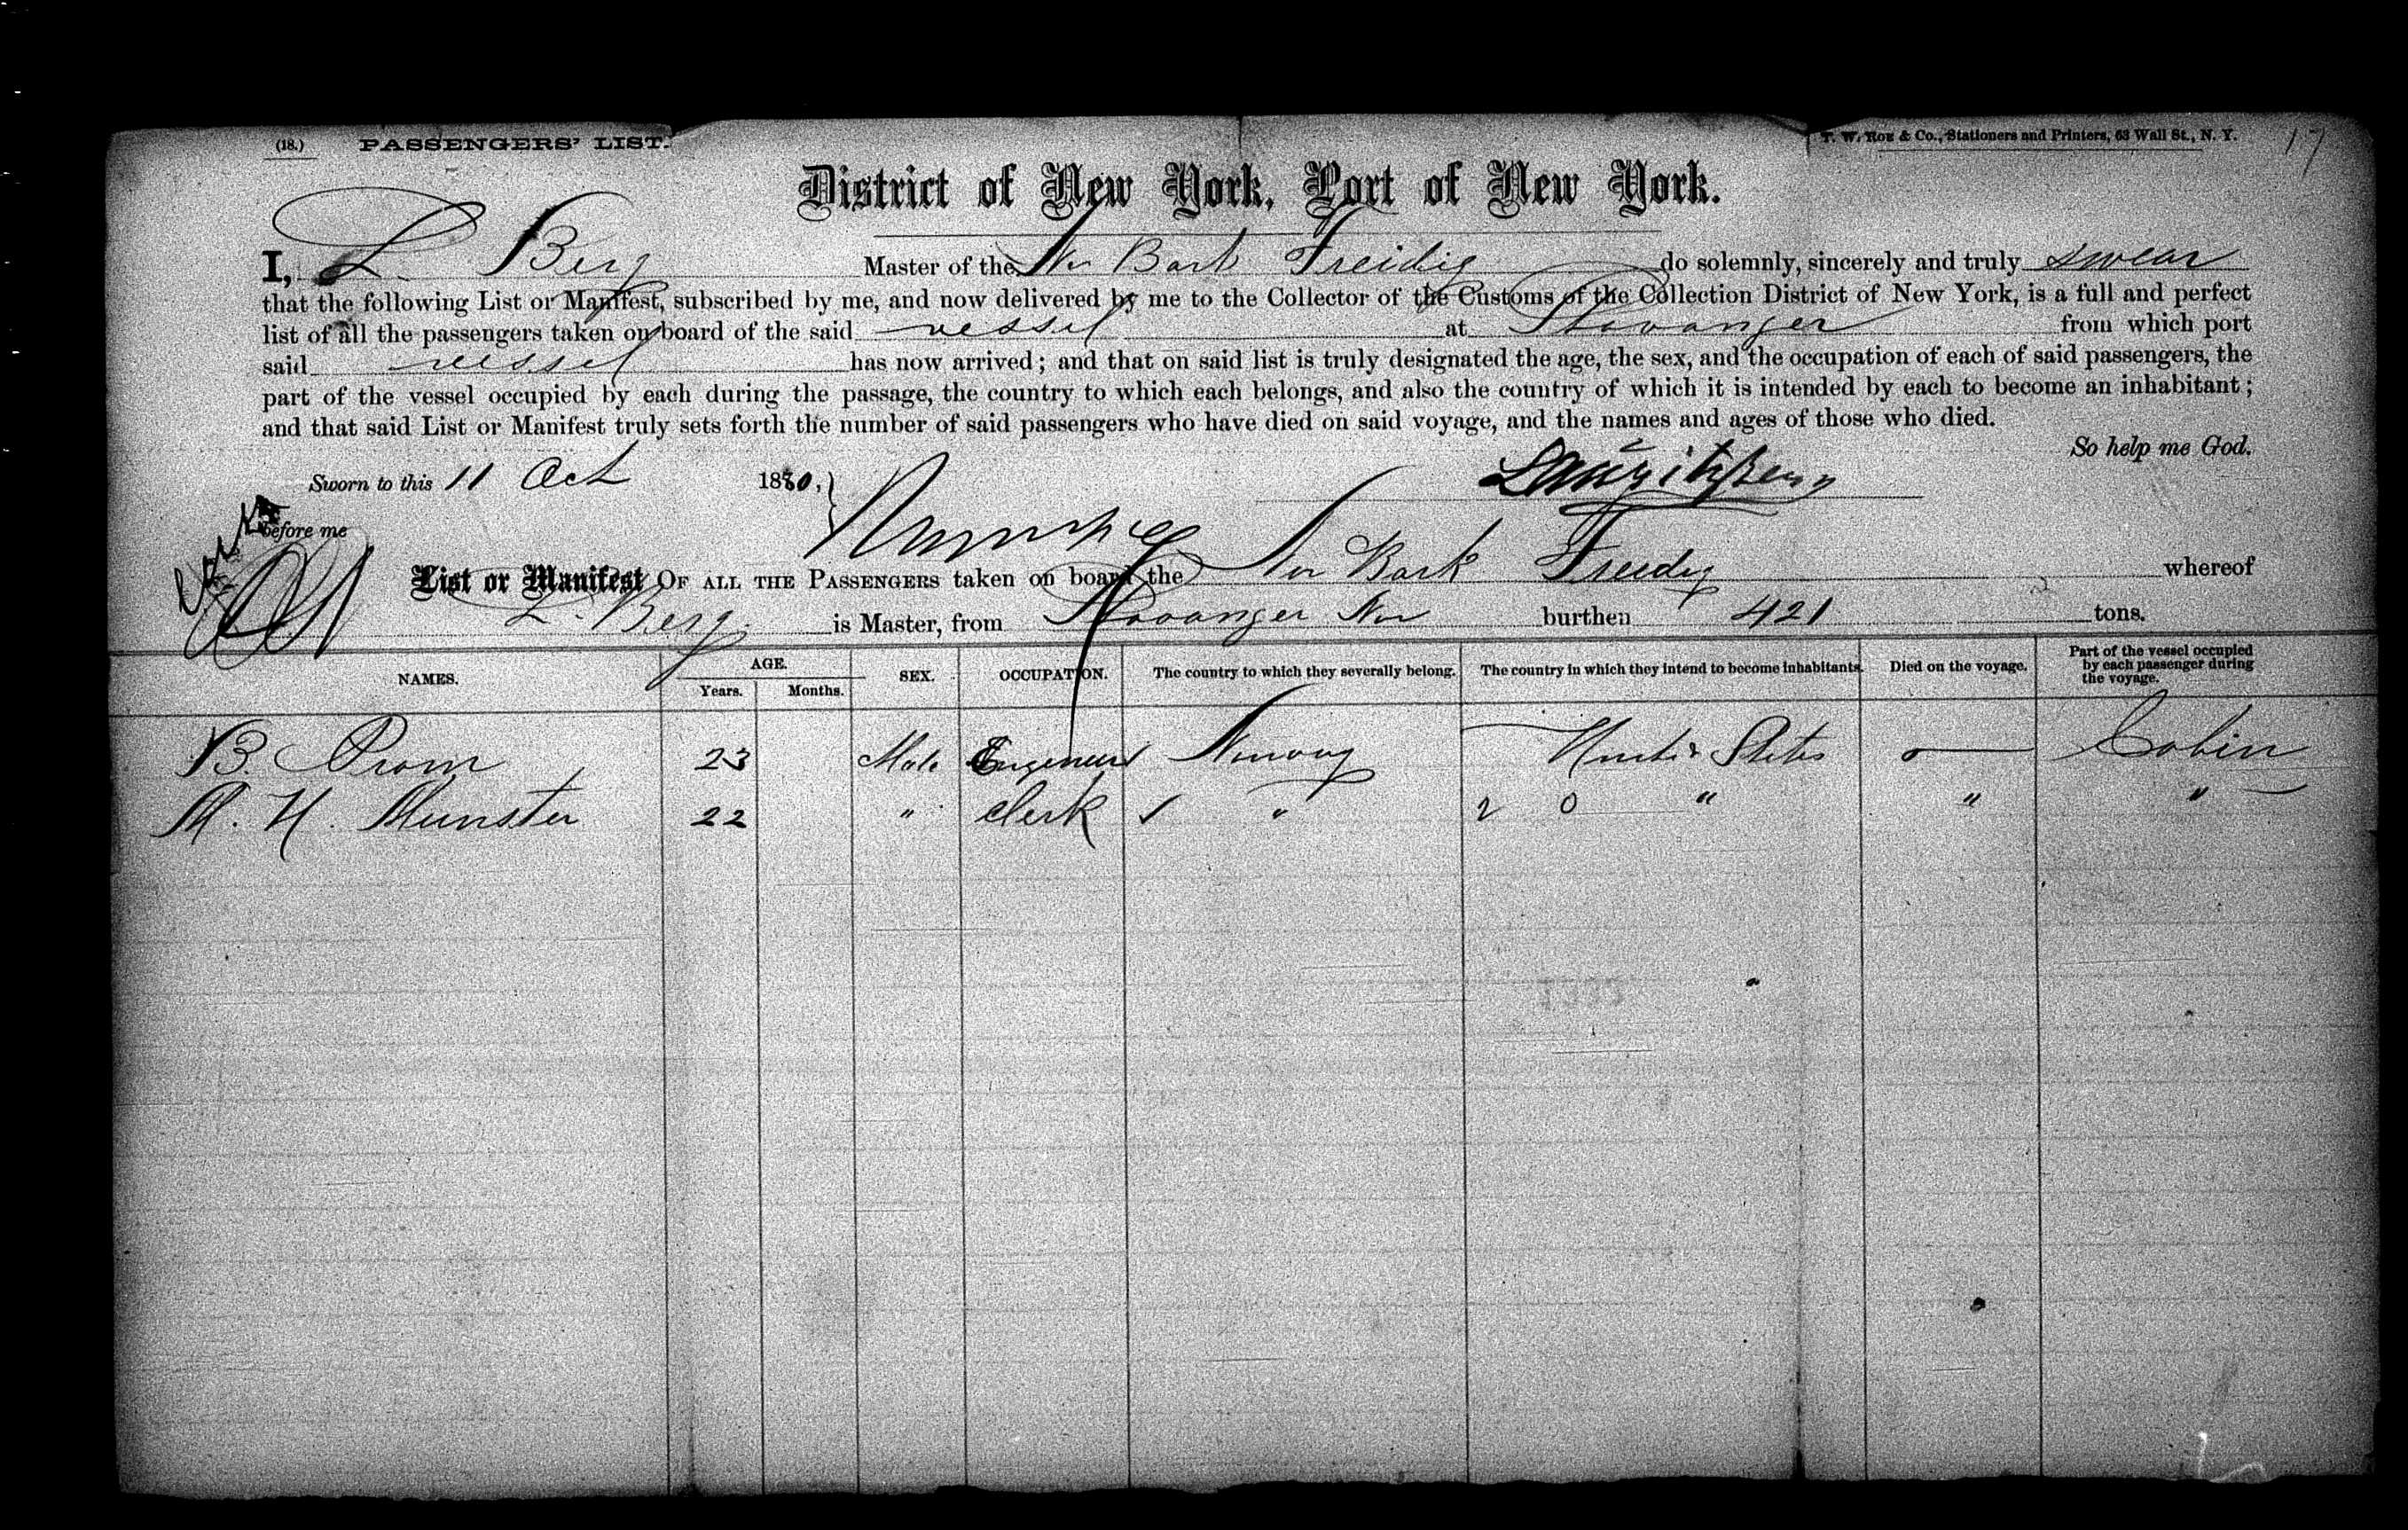 (18.) PASSENGERS' LIST. T. W. Roe & Co., Stationers and Printers, 63 Wall St., N. Y. 17
District of New York, Port of New York.
I, L. Berg Master of the Nor Bark Freidig do solemnly, sincerely and truly swear
that the following List or Manifest, subscribed by me, and now delivered by me to the Collector of the Customs of the Collection District of New York, is a full and perfect
list of all the passengers taken on board of the said vessel at Stavanger from which port
said vessel has now arrived; and that on said list is truly designated the age, the sex, and the occupation of each of said passengers, the
part of the vessel occupied by each during the passage, the country to which each belongs, and also the country of which it is intended by each to become an inhabitant;
and that said List or Manifest truly sets forth the number of said passengers who have died on said voyage, and the names and ages of those who died.
So help me God.
Sworn to this 11 Oct 1880, Lauritz Berg
before me
List or Manifest OF ALL THE PASSENGERS taken on board the Nor Bark Freidig whereof
L. Berg is Master, from Stavanger Nor burthen 421 tons.
NAMES. AGE. Years. Months. SEX. OCCUPATION. The country to which they severally belong. The country in which they intend to become inhabitants. Died on the voyage. Part of the vessel occupied by each passenger during the voyage.
B. Prom 23 Male Engineer Norway United States Cabin
M. H. Munster 22 " Clerk " 2 0 " " "